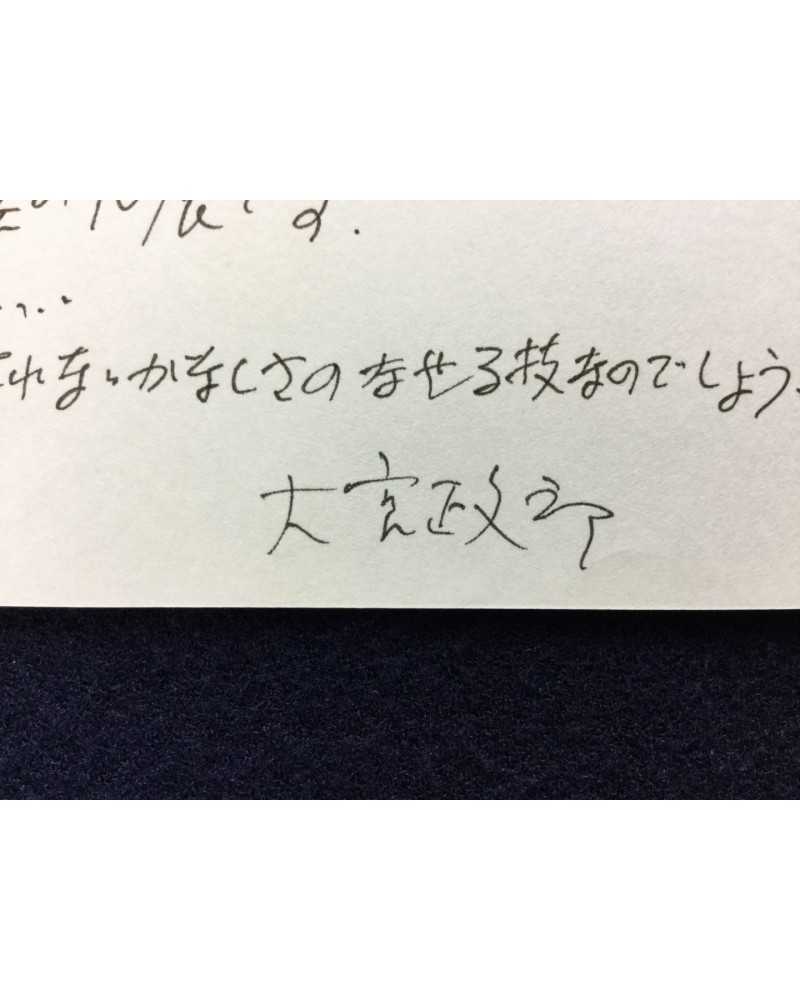 です.
....
れないかなしさのなせる技なのでしょう、
大宮政郎